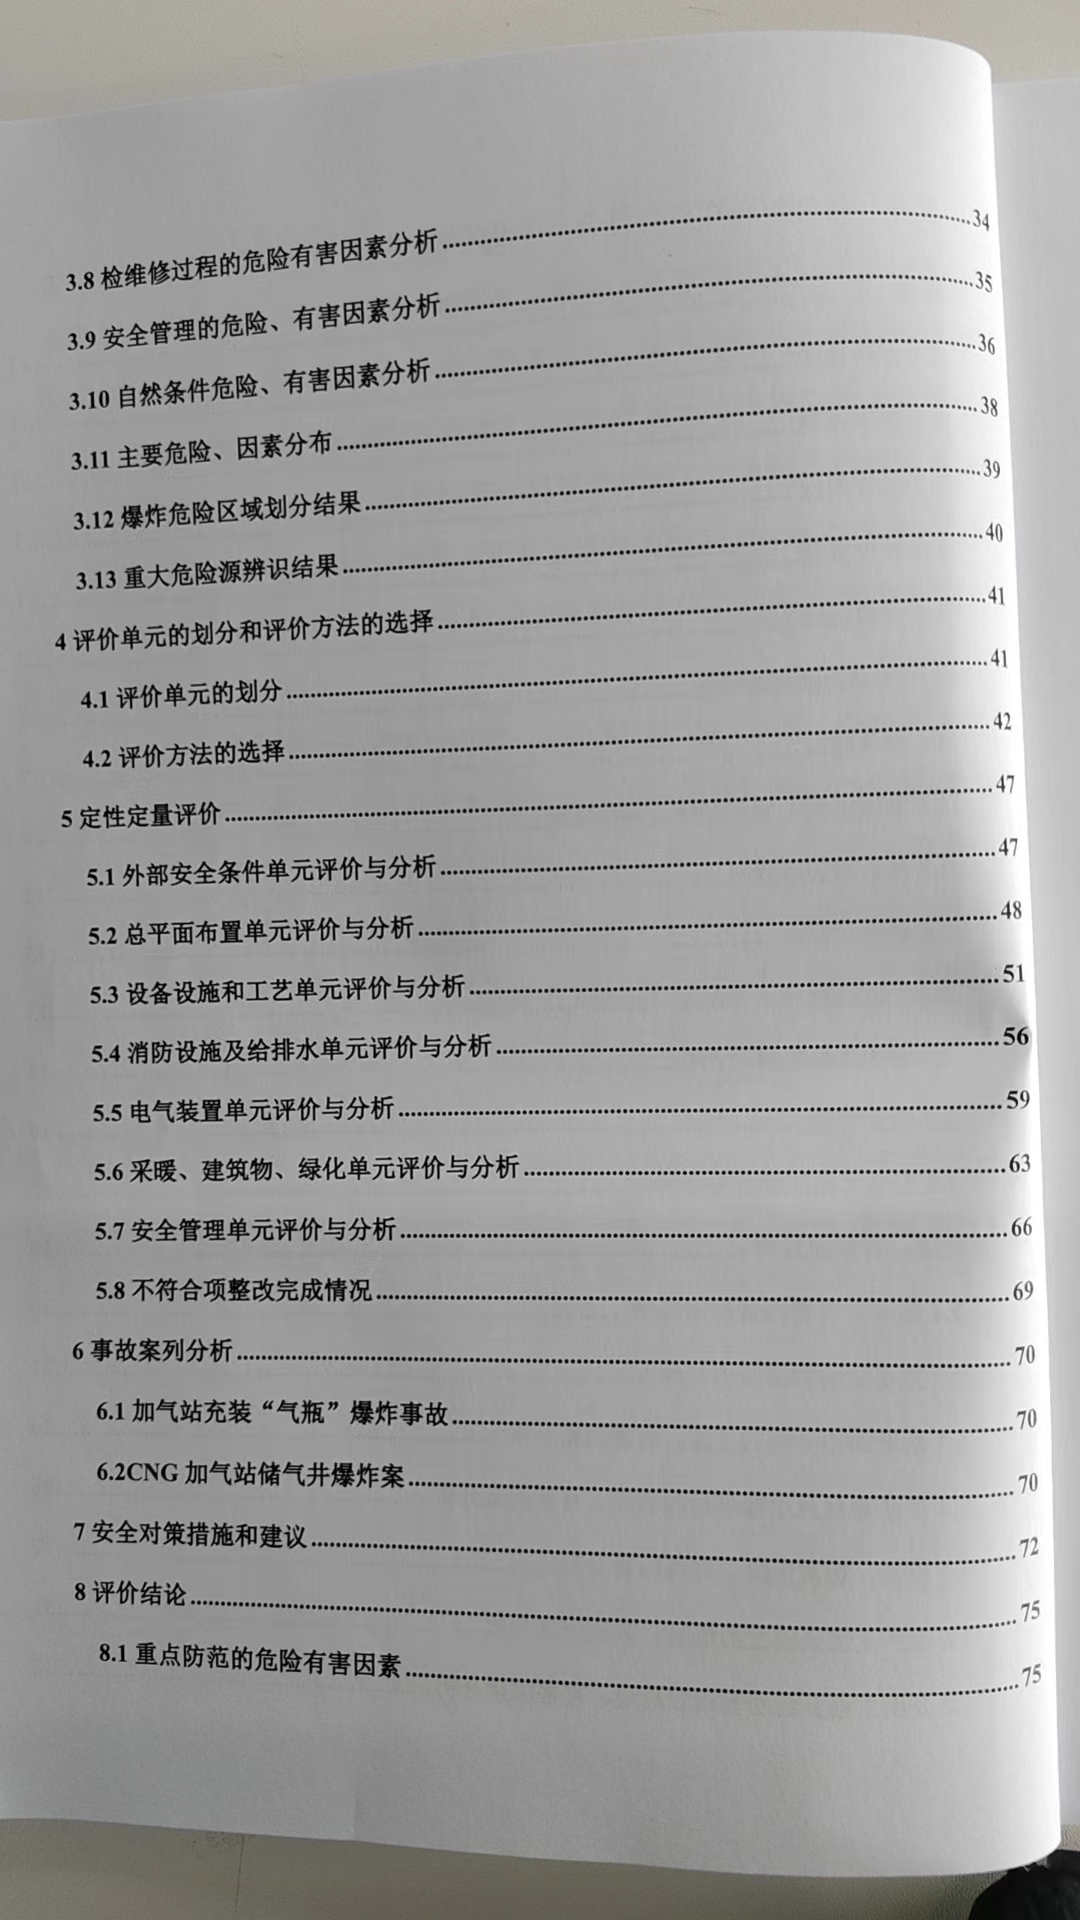 3.8 检维修过程的危险有害因素分析........34
3.9 安全管理的危险、有害因素分析........35
3.10 自然条件危险、有害因素分析........36
3.11 主要危险、因素分布........38
3.12 爆炸危险区域划分结果........39
3.13 重大危险源辨识结果........40
4 评价单元的划分和评价方法的选择........41
4.1 评价单元的划分........41
4.2 评价方法的选择........42
5 定性定量评价........47
5.1 外部安全条件单元评价与分析........47
5.2 总平面布置单元评价与分析........48
5.3 设备设施和工艺单元评价与分析........51
5.4 消防设施及给排水单元评价与分析........56
5.5 电气装置单元评价与分析........59
5.6 采暖、建筑物、绿化单元评价与分析........63
5.7 安全管理单元评价与分析........66
5.8 不符合项整改完成情况........69
6 事故案列分析........70
6.1 加气站充装“气瓶”爆炸事故........70
6.2CNG 加气站储气井爆炸案........70
7 安全对策措施和建议........72
8 评价结论........75
8.1 重点防范的危险有害因素........75